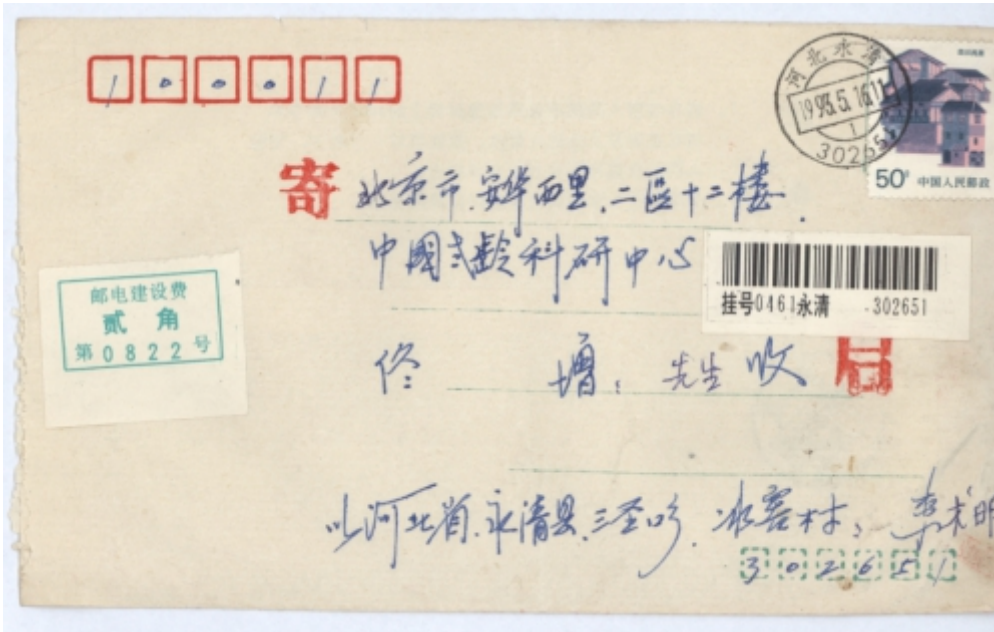 100011
河北永清
1993.5.16.11
1
302651
50分 中国人民邮政
寄
北京市.安华西里.二區十二楼.
中國
科研中心
挂号0461永清 302651
邮电建设费
贰角
第0822号
佟 增: 先生 收
河北省.永清县.三圣口乡. 冰窖村: 李
302651